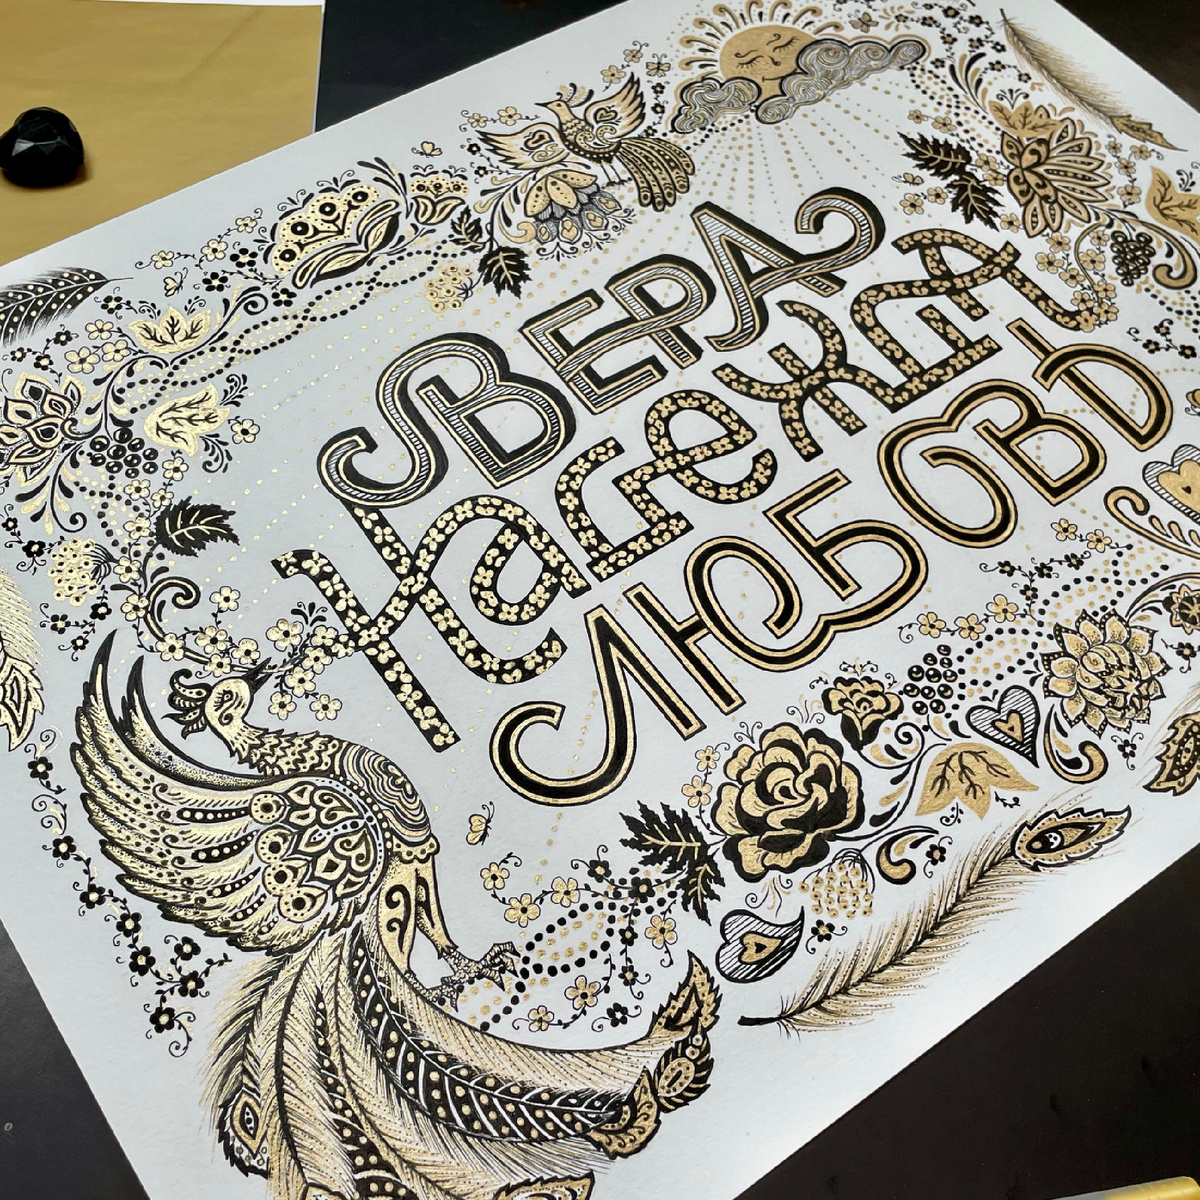 ВЕРА
Надежда
ЛЮБОВЬ